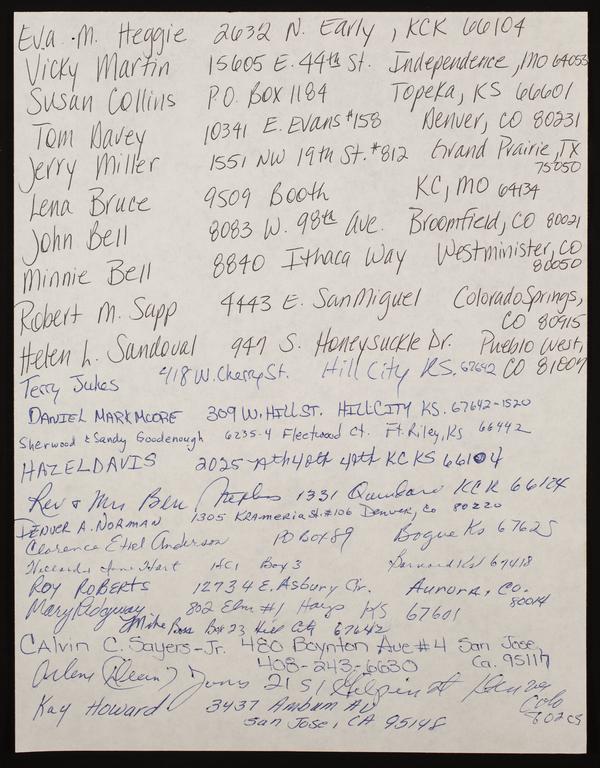 Eva M. Heggie 2632 N. Early, KCK 66104
Vicky Martin 15605 E. 44th St. Independence, MO 64055
Susan Collins P.O. Box 1184 Topeka, KS 66601
Tom Davey 10341 E. Evans #158 Denver, CO 80231
Jerry Miller 1551 NW 19th St. #812 Grand Prairie, TX
75050
Lena Bruce 9509 Booth KC, MO 64134
John Bell 8083 W. 98th Ave. Broomfield, CO 80021
Minnie Bell 8840 Ithaca Way Westminister, CO
80050
Robert M. Sapp 4443 E. San Miguel Colorado Springs,
CO 80915
Helen L. Sandoval 947 S. Honeysuckle Dr. Pueblo West,
CO 81007
Terry Jukes 418 W. Cherry St. Hill City KS. 67642
DANIEL MARK MOORE 309 W. HILL ST. HILL CITY KS. 67642-1520
Sherwood & Sandy Goodenough 6235-4 Fleetwood Ct. Ft. Riley, Ks 66442
HAZEL DAVIS 2025 40th KC KS 66104
Rev & Mrs Ben 1331 KCK 66104
DENVER A. NORMAN 1305 KRAMERIA St. #106 Denver, Co 80220
Clarence Ethel Anderson PO Box 89 Bogue Ks 67625
HC1 Box 3
ROY ROBERTS 12734 E. Asbury Cir. Aurora, Co.
80014
Mary Ridgway 802 Elm #1 Hays KS 67601
Mike Box 23 Hill City 67642
CAlvin C. Sayers-Jr. 480 Boynton Ave #4 San Jose,
408-243-6630 Ca. 95117
Arlene Jones
Colo
Kay Howard 3437 Ambum Av
San Jose, CA 95148